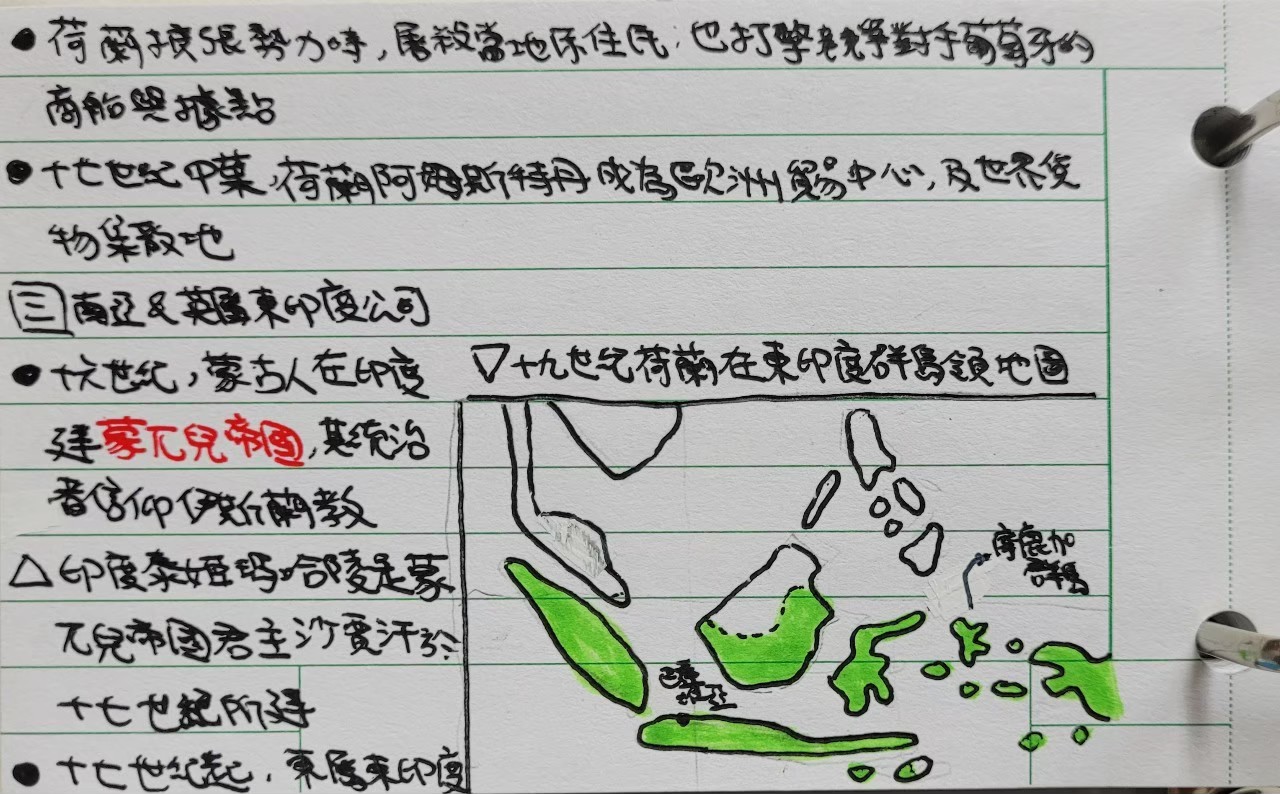 ● 荷蘭擴張勢力時，屠殺當地原住民，也打擊競爭對手葡萄牙的
商船與據點
● 十七世紀中葉，荷蘭阿姆斯特丹成為歐洲貿易中心，及世界貨
物集散地
三 南亞&英屬東印度公司
● 十六世紀，蒙古人在印度
建蒙兀兒帝國，其統治
者信仰伊斯蘭教
△ 印度泰姬瑪哈陵是蒙
兀兒帝國君主沙賈汗於
十七世紀所建
● 十七世紀起，英屬東印度
▽十九世紀荷蘭在東印度群島領地圖
摩鹿加
群島
巴達
維亞